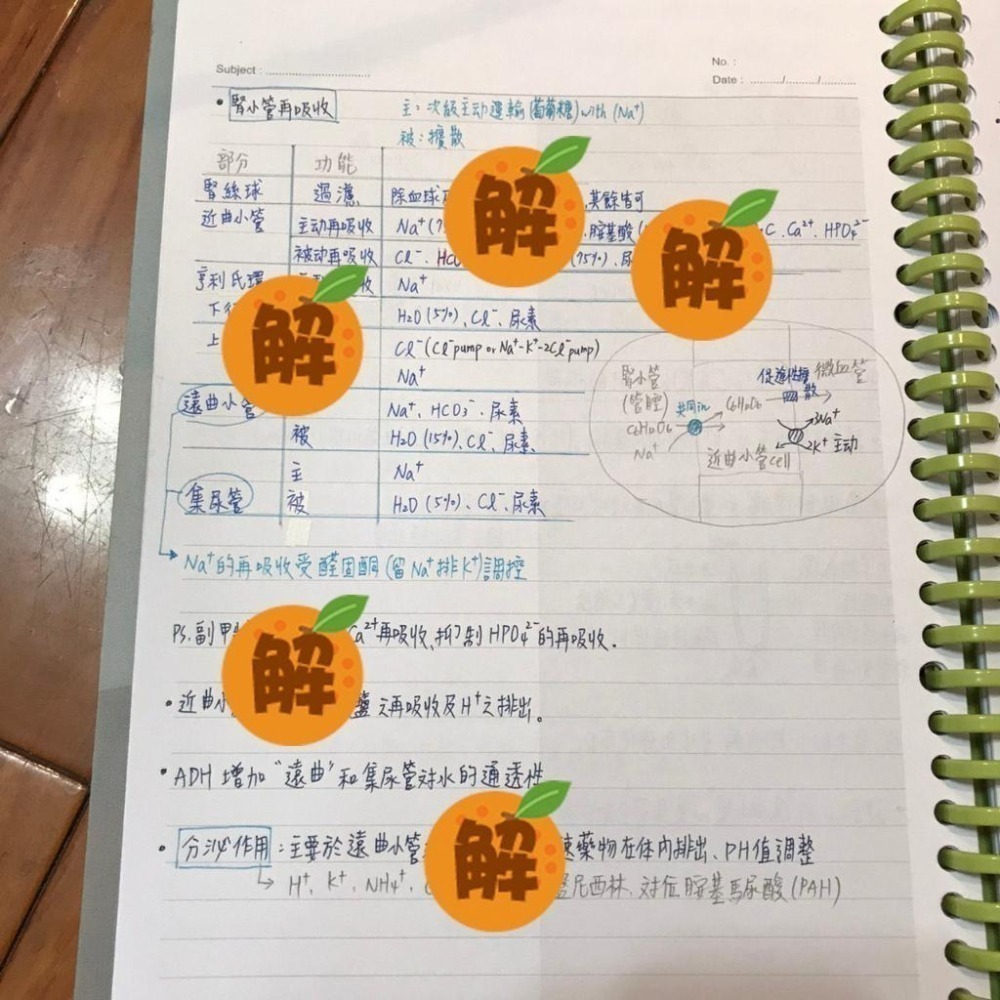 Subject :
No. :
Date : / /
• 腎小管再吸收 主:次級主動運輸(葡萄糖) with (Na⁺)
被:擴散
部分 功能
腎絲球 過濾 除血球 其餘皆可
近曲小管 主動再吸收 Na⁺ 胺基酸 C. Ca²⁺. HPO₄²⁻
被动再吸收 Cl⁻. HCO (75%). 尿
亨利氏環 收 Na⁺
下 H₂O (5%)、Cl⁻、尿素
上 Cl⁻ (Cl⁻pump or Na⁺-K⁺-2Cl⁻pump)
Na⁺
遠曲小管 Na⁺、HCO₃⁻、尿素
被 H₂O (15%)、Cl⁻、尿素
主 Na⁺
集尿管 被 H₂O (5%)、Cl⁻、尿素
腎小管 (管腔)
促進性擴散 微血管
共同in C₆H₁₂O₆
C₆H₁₂O₆
3Na⁺
Na⁺ 2K⁺ 主动
近曲小管cell
Na⁺的再吸收受醛固酮(留Na⁺排K⁺)調控
Ps. 副甲 Ca²⁺再吸收、抑制HPO₄²⁻的再吸收.
• 近曲小 鹽之再吸收及H⁺之排出。
• ADH 增加"遠曲"和集尿管对水的通透性
• 分泌作用:主要於遠曲小管 速藥物在体內排出、PH值調整
↳ H⁺. K⁺. NH₄⁺. 尼西林. 对位胺基馬尿酸(PAH)
解
解
解
解
解